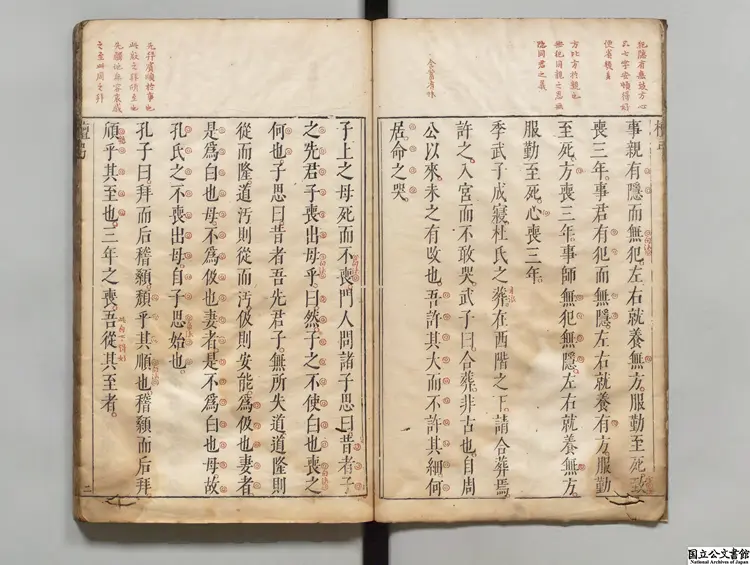 犯隱有無致方心
只七字安頓得好
方比方於親也
無犯同親之恩無
隱同君之義
事親有隱而無犯。左右就養無方。服勤至死。致
喪三年。事君有犯而無隱。左右就養有方。服勤
至死。方喪三年。事師無犯無隱。左右就養無方。
服勤至死。心喪三年。
季武子成寢。杜氏之葬在西階之下。請合葬焉。
許之。入宮而不敢哭。武子曰。合葬。非古也。自周
公以來。未之有改也。吾許其大而不許其細。何
居。命之哭。
先拜賓順於事也
此殷之拜頎至也
先觸地無容哀戚
之至此周之拜
檀弓
子上之母死而不喪。門人問諸子思曰。昔者子
之先君子喪出母乎。曰。然。子之不使白也喪之。
何也。子思曰。昔者吾先君子。無所失道。道隆則
從而隆。道汚則從而汚。伋則安能。爲伋也妻者。
是爲白也母。不爲伋也妻者。是不爲白也母。故
孔氏之不喪出母。自子思始也。
孔子曰。拜而后稽顙。頹乎其順也。稽顙而后拜。
頎乎其至也。三年之喪。吾從其至者。
二
国立公文書館
National Archives of Japan